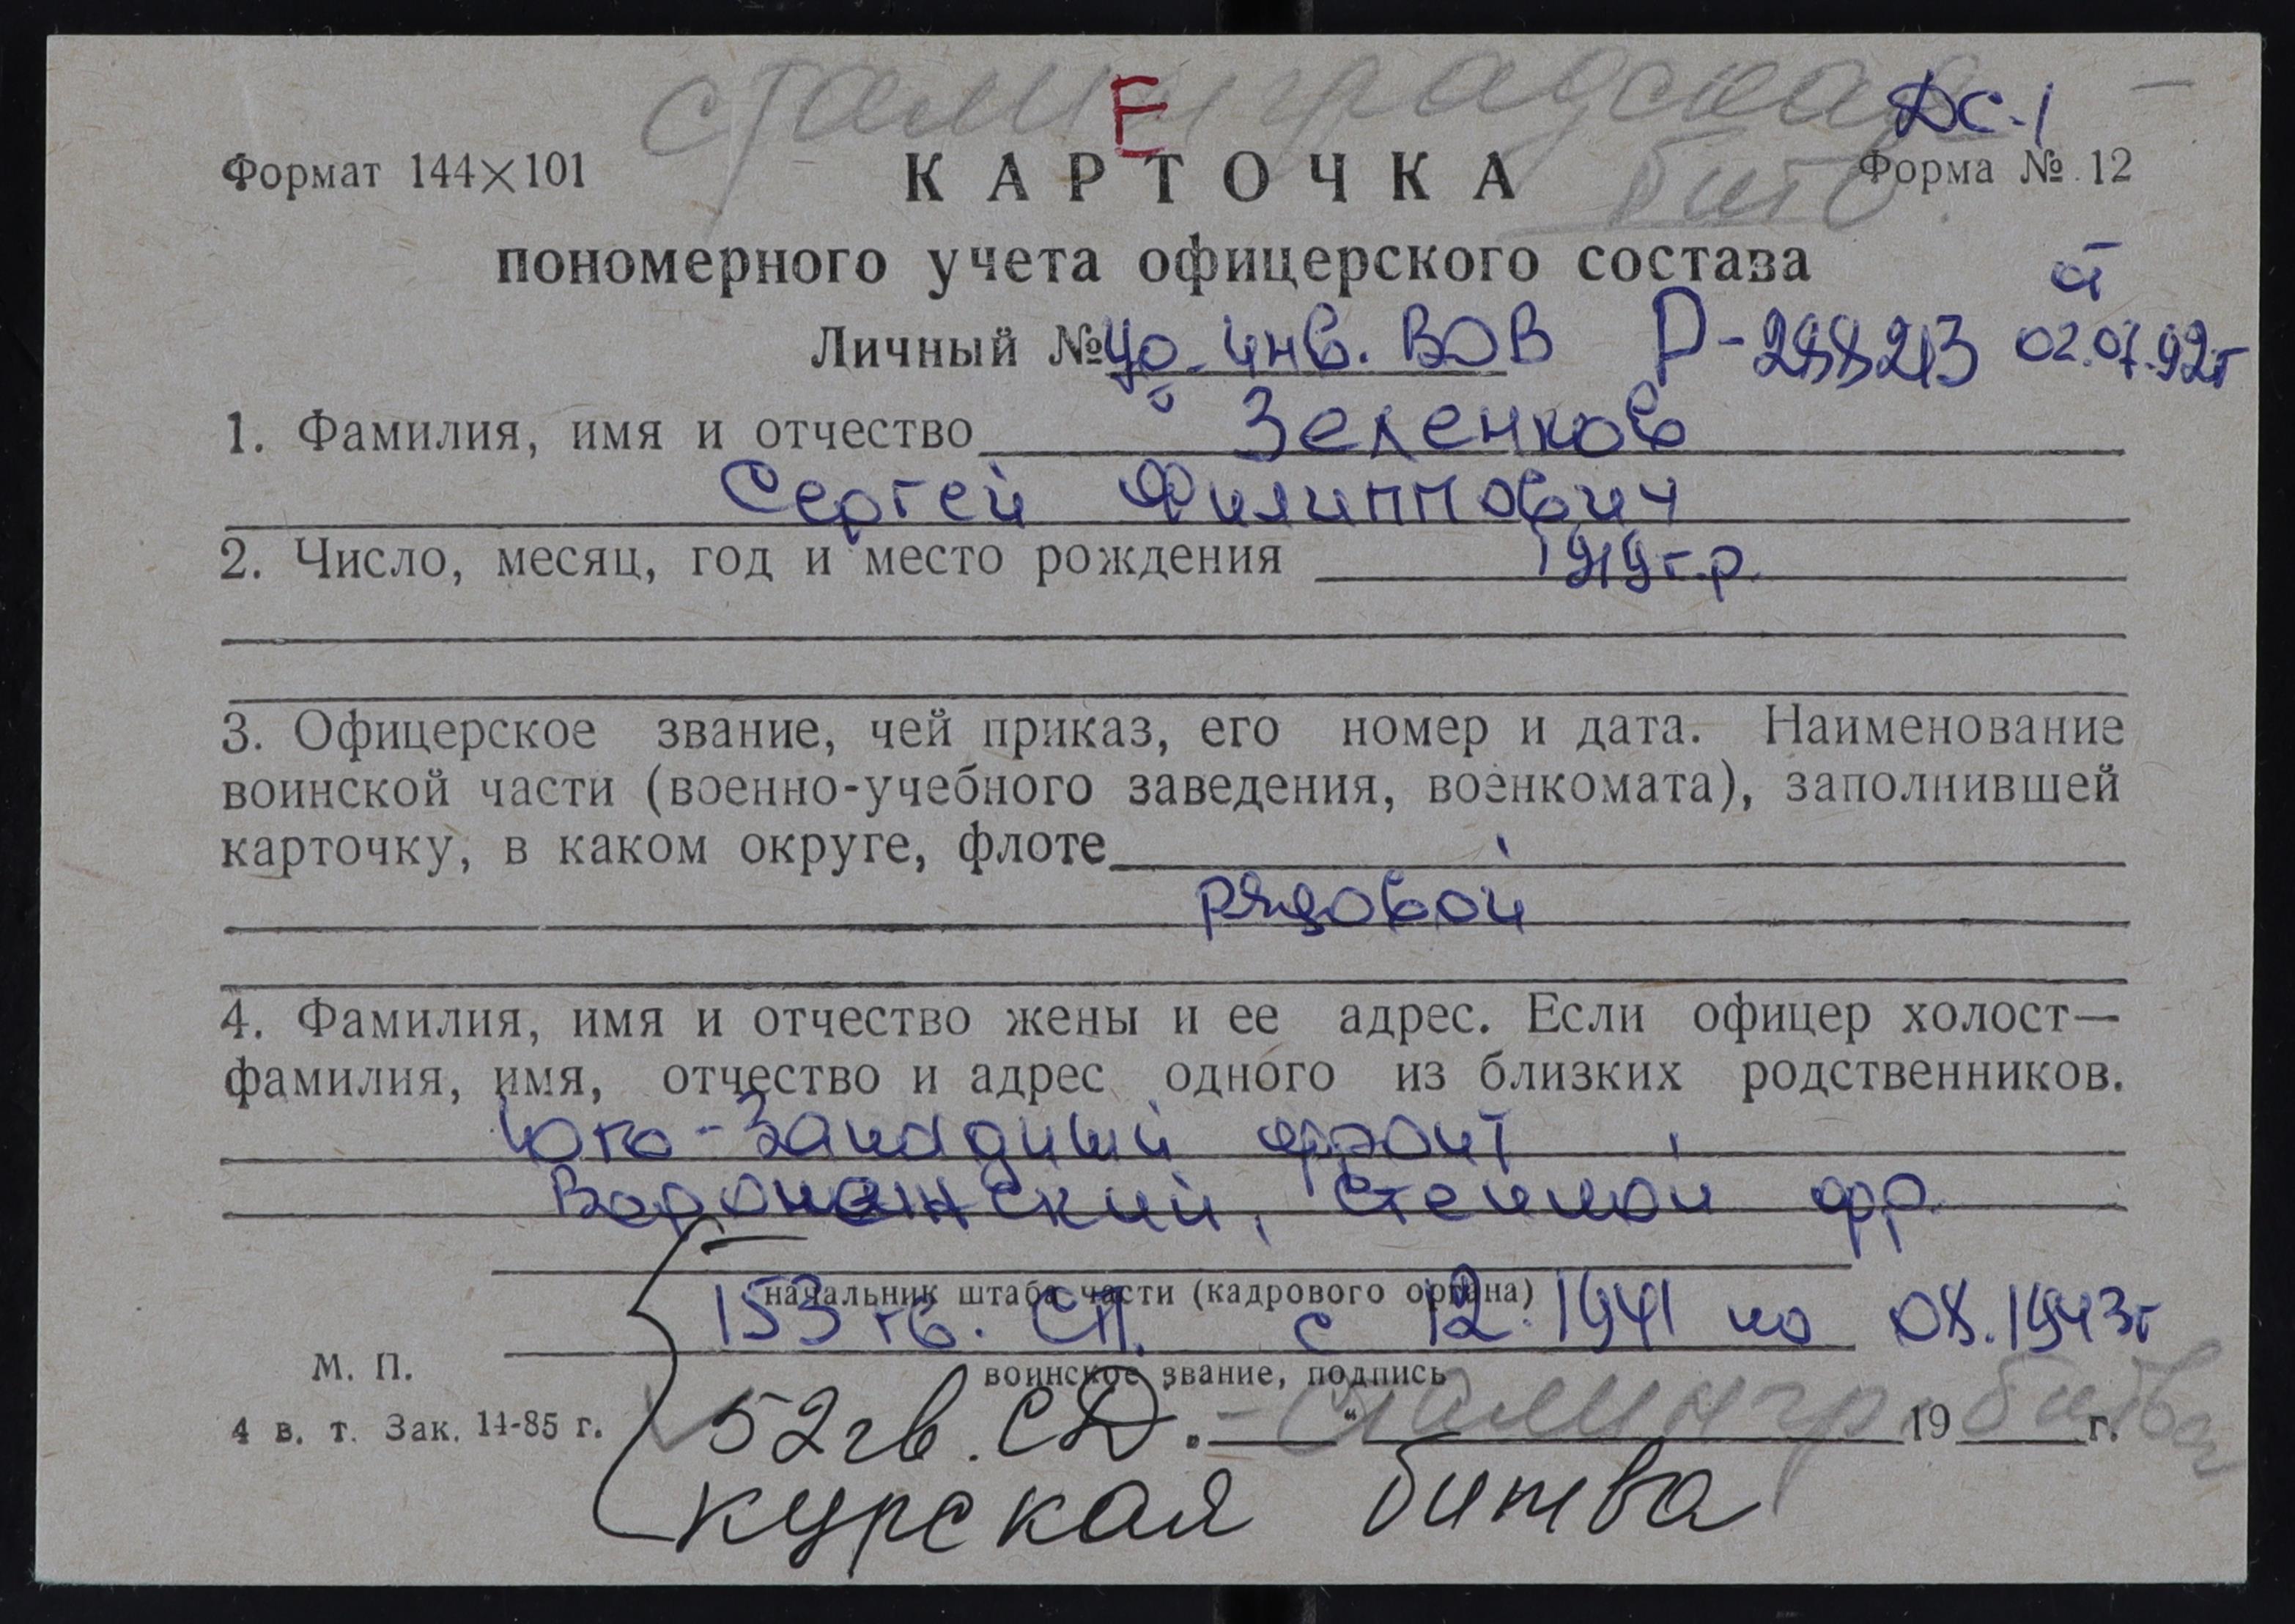 Сталинградская
Е
ДС-1
Формат 144×101
КАРТОЧКА
Форма № 12
битв.
пономерного учета офицерского состава
Личный № уд. инв. ВОВ Р-288213 02.07.92г
1. Фамилия, имя и отчество Зеленков
Сергей Филиппович
2. Число, месяц, год и место рождения 1919 г.р.
3. Офицерское звание, чей приказ, его номер и дата. Наименование
воинской части (военно-учебного заведения, военкомата), заполнившей
карточку, в каком округе, флоте
рядовой
4. Фамилия, имя и отчество жены и ее адрес. Если офицер холост—
фамилия, имя, отчество и адрес одного из близких родственников.
Юго-Западный фронт,
Воронежский, Степной фр.
начальник штаба части (кадрового органа)
153 гв. СП. с 12.1941 по 08.1943г
воинское звание, подпись
М. П.
52 гв. СД. - Сталингр. битва
4 в. т. Зак. 14-85 г.
" 19 г.
Курская битва